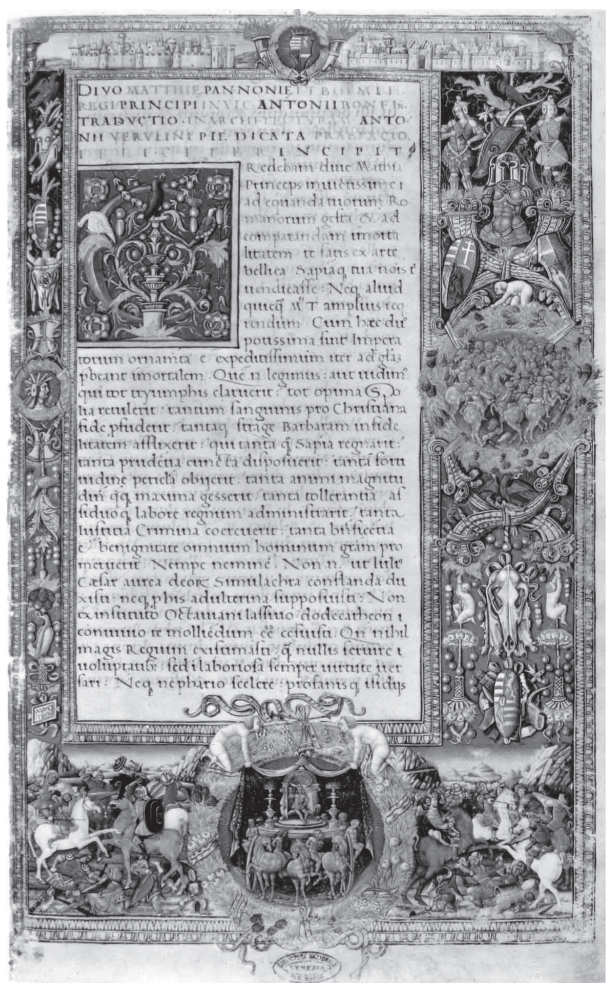 DIVO MATTHIE PANNONIE ET BOEMIE
REGI PRINCIPI INVIC ANTONII BONFIN
TRADVCTIO IN ARCHITECTVRAM ANTO
NII VERVLINI PIE DICATA PRAEFACIO
FELICITER INCIPIT
Redebam dive Mathia
Princeps invictissime i
ad equanda tuorum Ro
manorum gesta & ad
comparandam immorta
litatem te satis ex arte
bellica Sapiaq tua nois
vendicasse Neq aliud
quicq M T amplius req
rendum Cum hec due
potissima sint Impera
torum ornamta e expeditissimum iter ad glam
pbeant imortalem Que n legimus aut vidim
qui tot tryumphis claruerit tot opima Spo
lia retulerit tantum sanguinis pro Christiana
fide pfuderit tantaq strage Barbaram infide
litatem afflixerit qui tanta q Sapia regnarit
tanta prudetia cuncta disposuerit tanta forti
tudine pericla obierit tanta animi magnitu
din qq maxima gesserit tanta tollerantia as
siduo q labore regnum administrarit tanta
Iustitia Crimina coercuerit tanta bnficetia
e benignitate omnium hominum gram pro
meruerit Nempe nemine Non n ut Iuli
Caesar aurea deor Simulachra conflanda du
xisti neq phis adulterina supposuisti Non
ex instituto Octaviani lascivio dodecatheon i
convivio te molliedium ee cesuisti Qn nihil
magis Regium existimasti q nullis servire
voluptatib sed i laboriosa semper virtute ver
sari Neq nephario scelere profanisq isidijs
VENEZIA